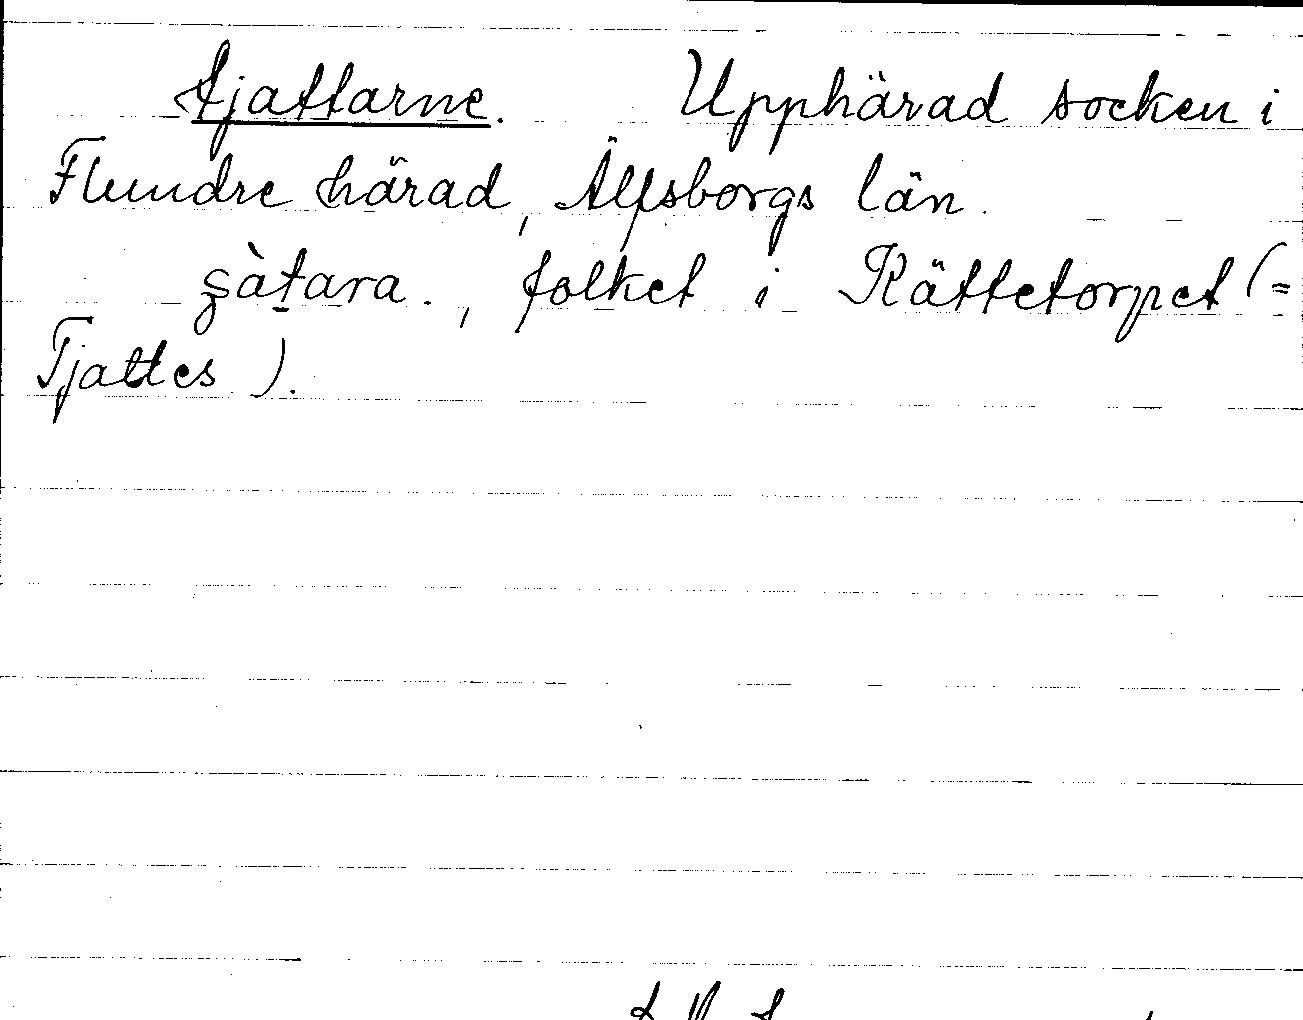 tjattarne. Upphärad socken i
Flundre härad, Älfsborgs län.
ʂàt̠ara., folket i Rättetorpet (=
Tjattes).